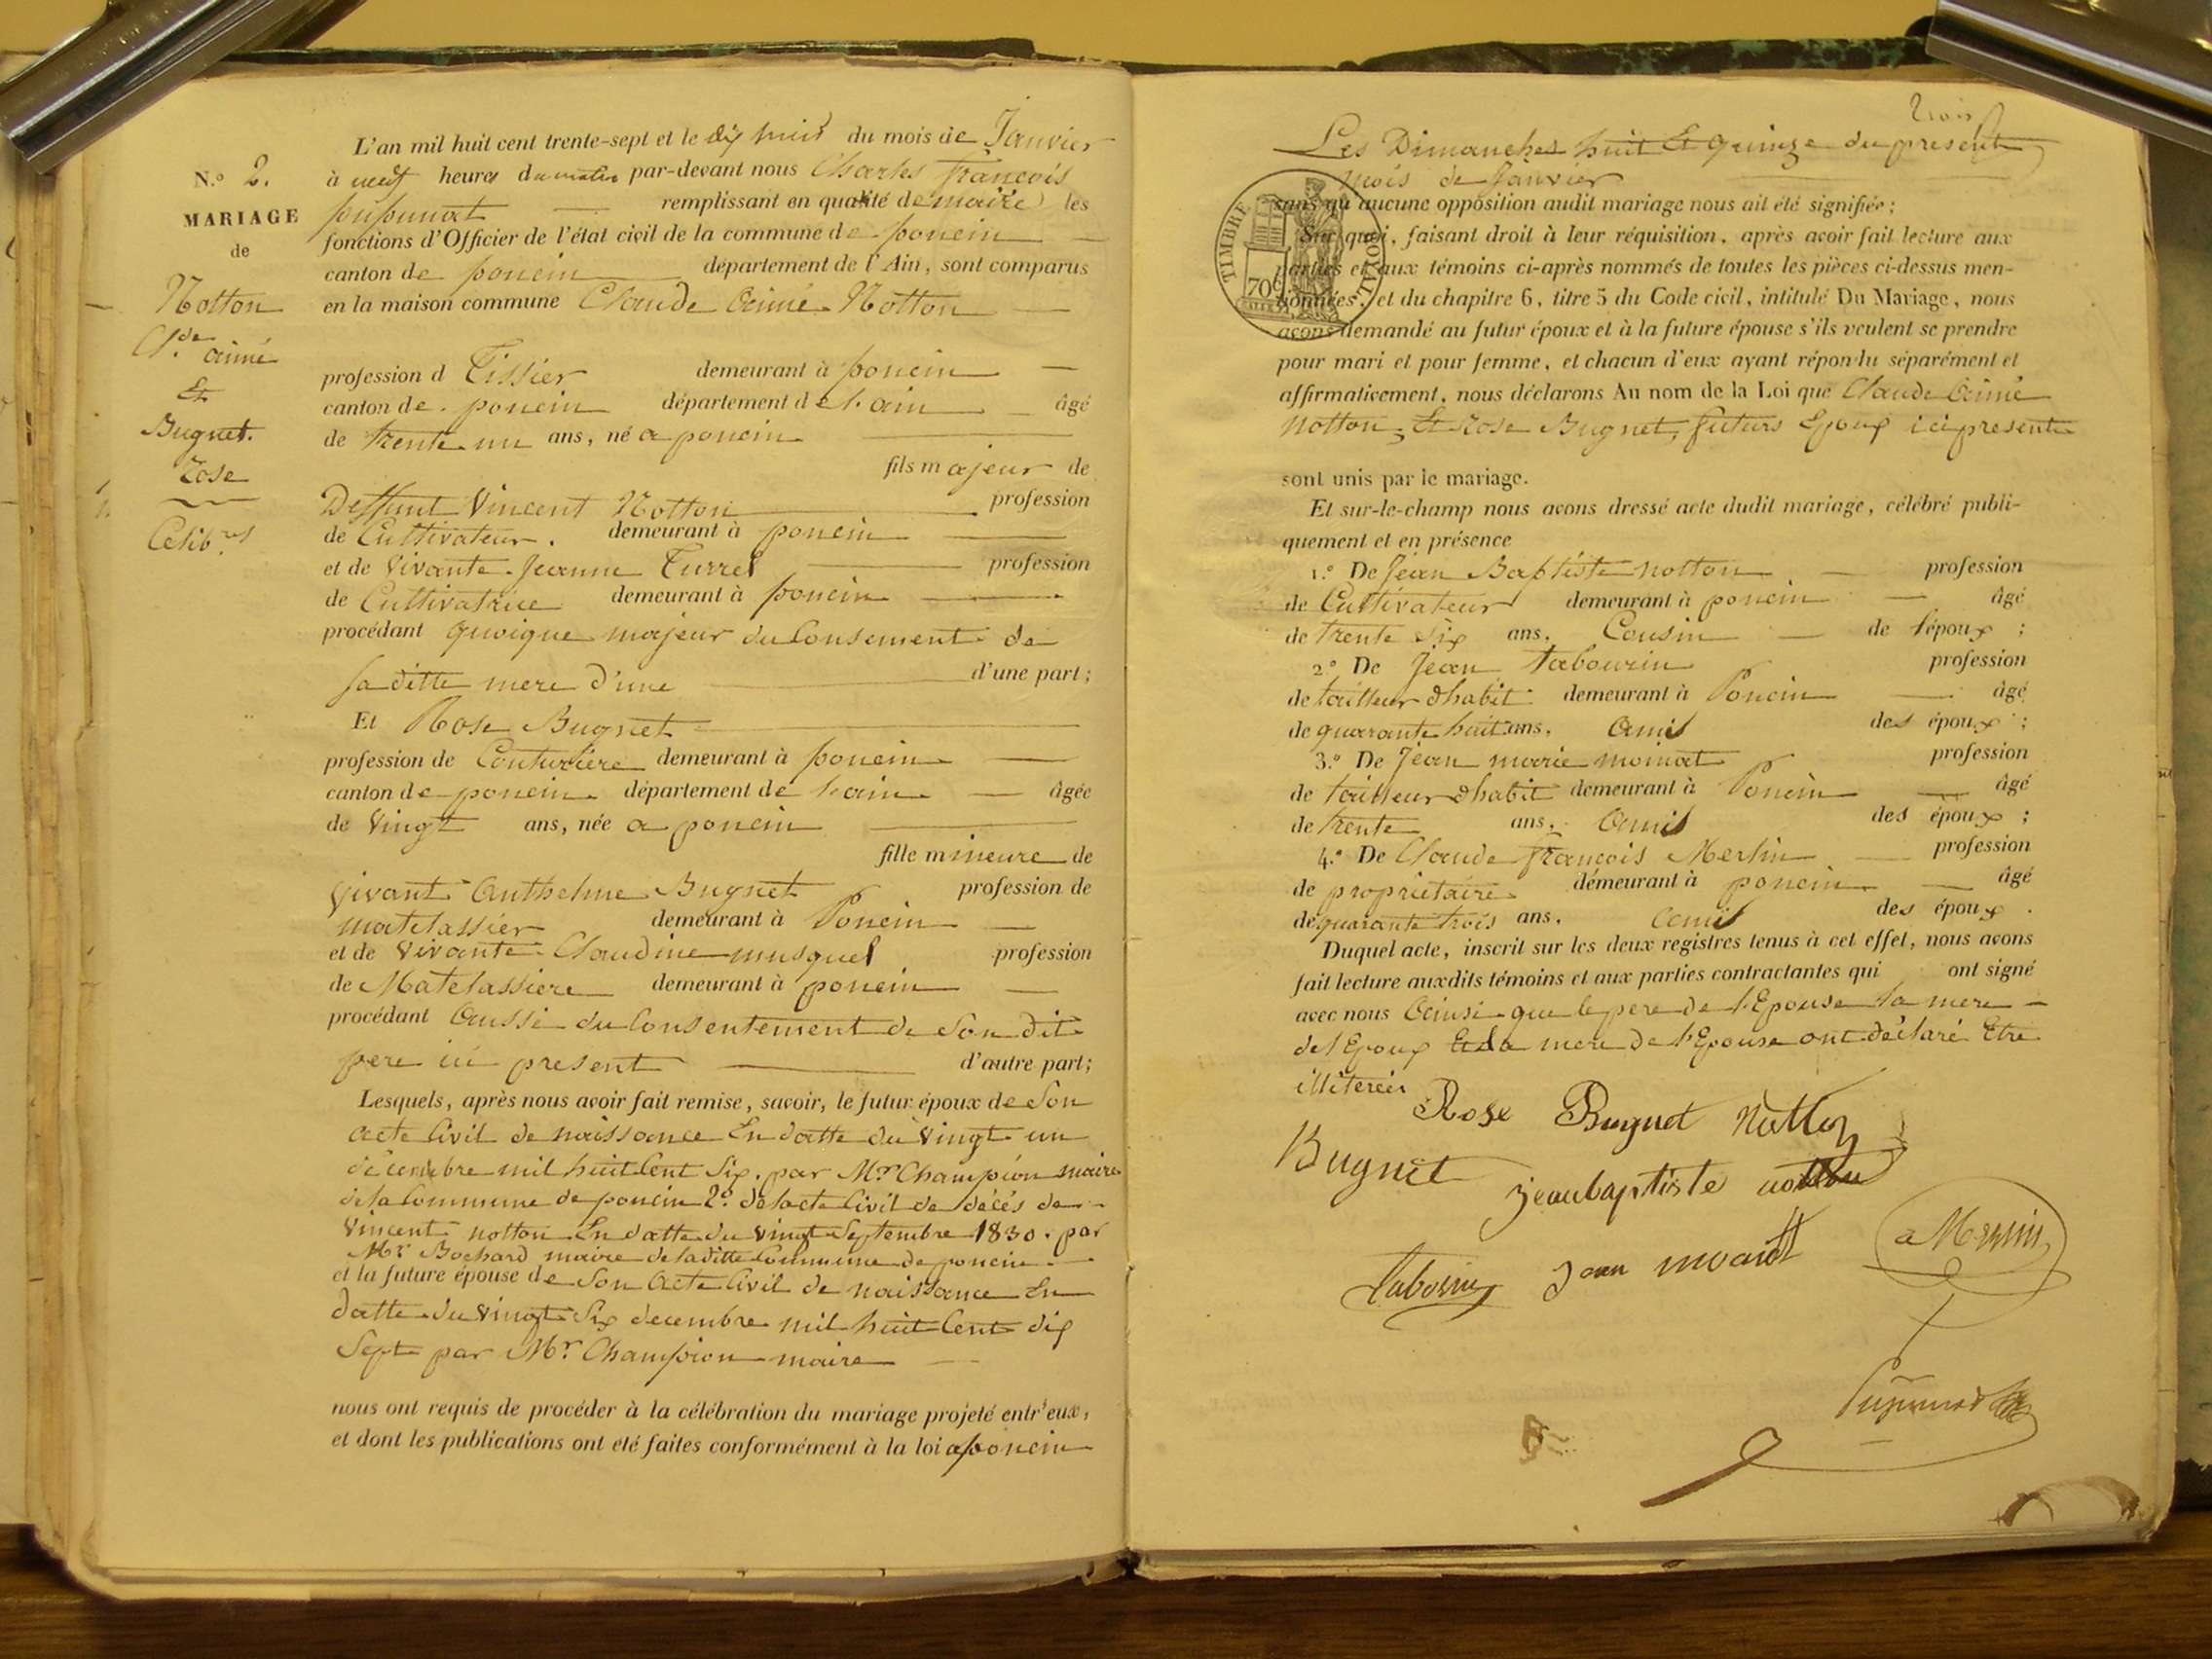 N.o 2.
MARIAGE
de
Notton
Cl.de aimé
Et
Bugnet.
Rose
Celib.res
L'an mil huit cent trente-sept et le dix huit du mois de Janvier
à neuf heures du matin par-devant nous Charles françois
pupunat remplissant en qualité de maire les
fonctions d'Officier de l'état civil de la commune de poncin
canton de poncin département de l'Ain, sont comparus
en la maison commune Claude Aimé Notton
profession d Tissier demeurant à poncin
canton de poncin département de l'ain âgé
de trente un ans, né a poncin
fils majeur de
Deffunt Vincent Notton profession
de Cultivateur. demeurant à poncin
et de Vivante Jeanne Turrel profession
de Cultivatrice demeurant à poncin
procédant quoique majeur du Consement de
sa ditte mere d'une d'une part;
Et Rose Bugnet
profession de Couturiere demeurant à poncin
canton de poncin département de l'ain âgée
de Vingt ans, née a poncin
fille mineure de
Vivant Anthelme Bugnet profession de
matelassier demeurant à Poncin
et de Vivante Claudine musquel profession
de Matelassiere demeurant à poncin
procédant Aussi du Consentement de Son dit
pere ici present d'autre part;
Lesquels, après nous avoir fait remise, savoir, le futur époux de Son
acte Civil de naissance En datte du Vingt un
décembre mil huit Cent Six. par Mr Champion maire
de la Commune de poncin 2.o de lacte Civil de décés de
Vincent notton En datte du Vingt Septembre 1830. par
Mr Bochard maire de laditte Commune de poncin
et la future épouse de Son Acte Civil de naissance En
datte du Vingt Six decembre mil huit Cent dix
Sept par Mr Champion maire
nous ont requis de procéder à la célébration du mariage projeté entr'eux,
et dont les publications ont été faites conformément à la loi a poncin
trois
Les Dimanches huit Et quinze du present
mois de Janvier
TIMBRE ROYAL
70c
sans qu'aucune opposition audit mariage nous ait été signifiée;
Sur quoi, faisant droit à leur réquisition, après avoir fait lecture aux
parties et aux témoins ci-après nommés de toutes les pièces ci-dessus men-
tionnées, et du chapitre 6, titre 5 du Code civil, intitulé Du Mariage, nous
avons demandé au futur époux et à la future épouse s'ils veulent se prendre
pour mari et pour femme, et chacun d'eux ayant répondu séparément et
affirmativement, nous déclarons Au nom de la Loi que Claude Aimé
Notton, Et Rose Bugnet, futurs Epoux ici presents
sont unis par le mariage.
Et sur-le-champ nous avons dressé acte dudit mariage, célébré publi-
quement et en présence
1.o De Jean Baptiste notton profession
de Cultivateur demeurant à poncin âgé
de trente six ans, Cousin de l'époux ;
2.o De Jean tabourin profession
de tailleur dhabit demeurant à Poncin âgé
de quarante huit ans, Amis des époux ;
3.o De Jean marie moinat profession
de tailleur dhabit demeurant à Poncin âgé
de trente ans, Amis des époux ;
4.o De Claude françois Merlin profession
de propriétaire demeurant à poncin âgé
de quarante trois ans, Amis des époux .
Duquel acte, inscrit sur les deux registres tenus à cet effet, nous avons
fait lecture auxdits témoins et aux parties contractantes qui ont signé
avec nous Ainsi que le pere de l'Epouse la mere
de l'Epoux Et la mere de l'Epouse ont déclaré Etre
illiterées
Rose Bugnet Notton
Bugnet jeanbaptiste notton
Tabourin Jean moinat